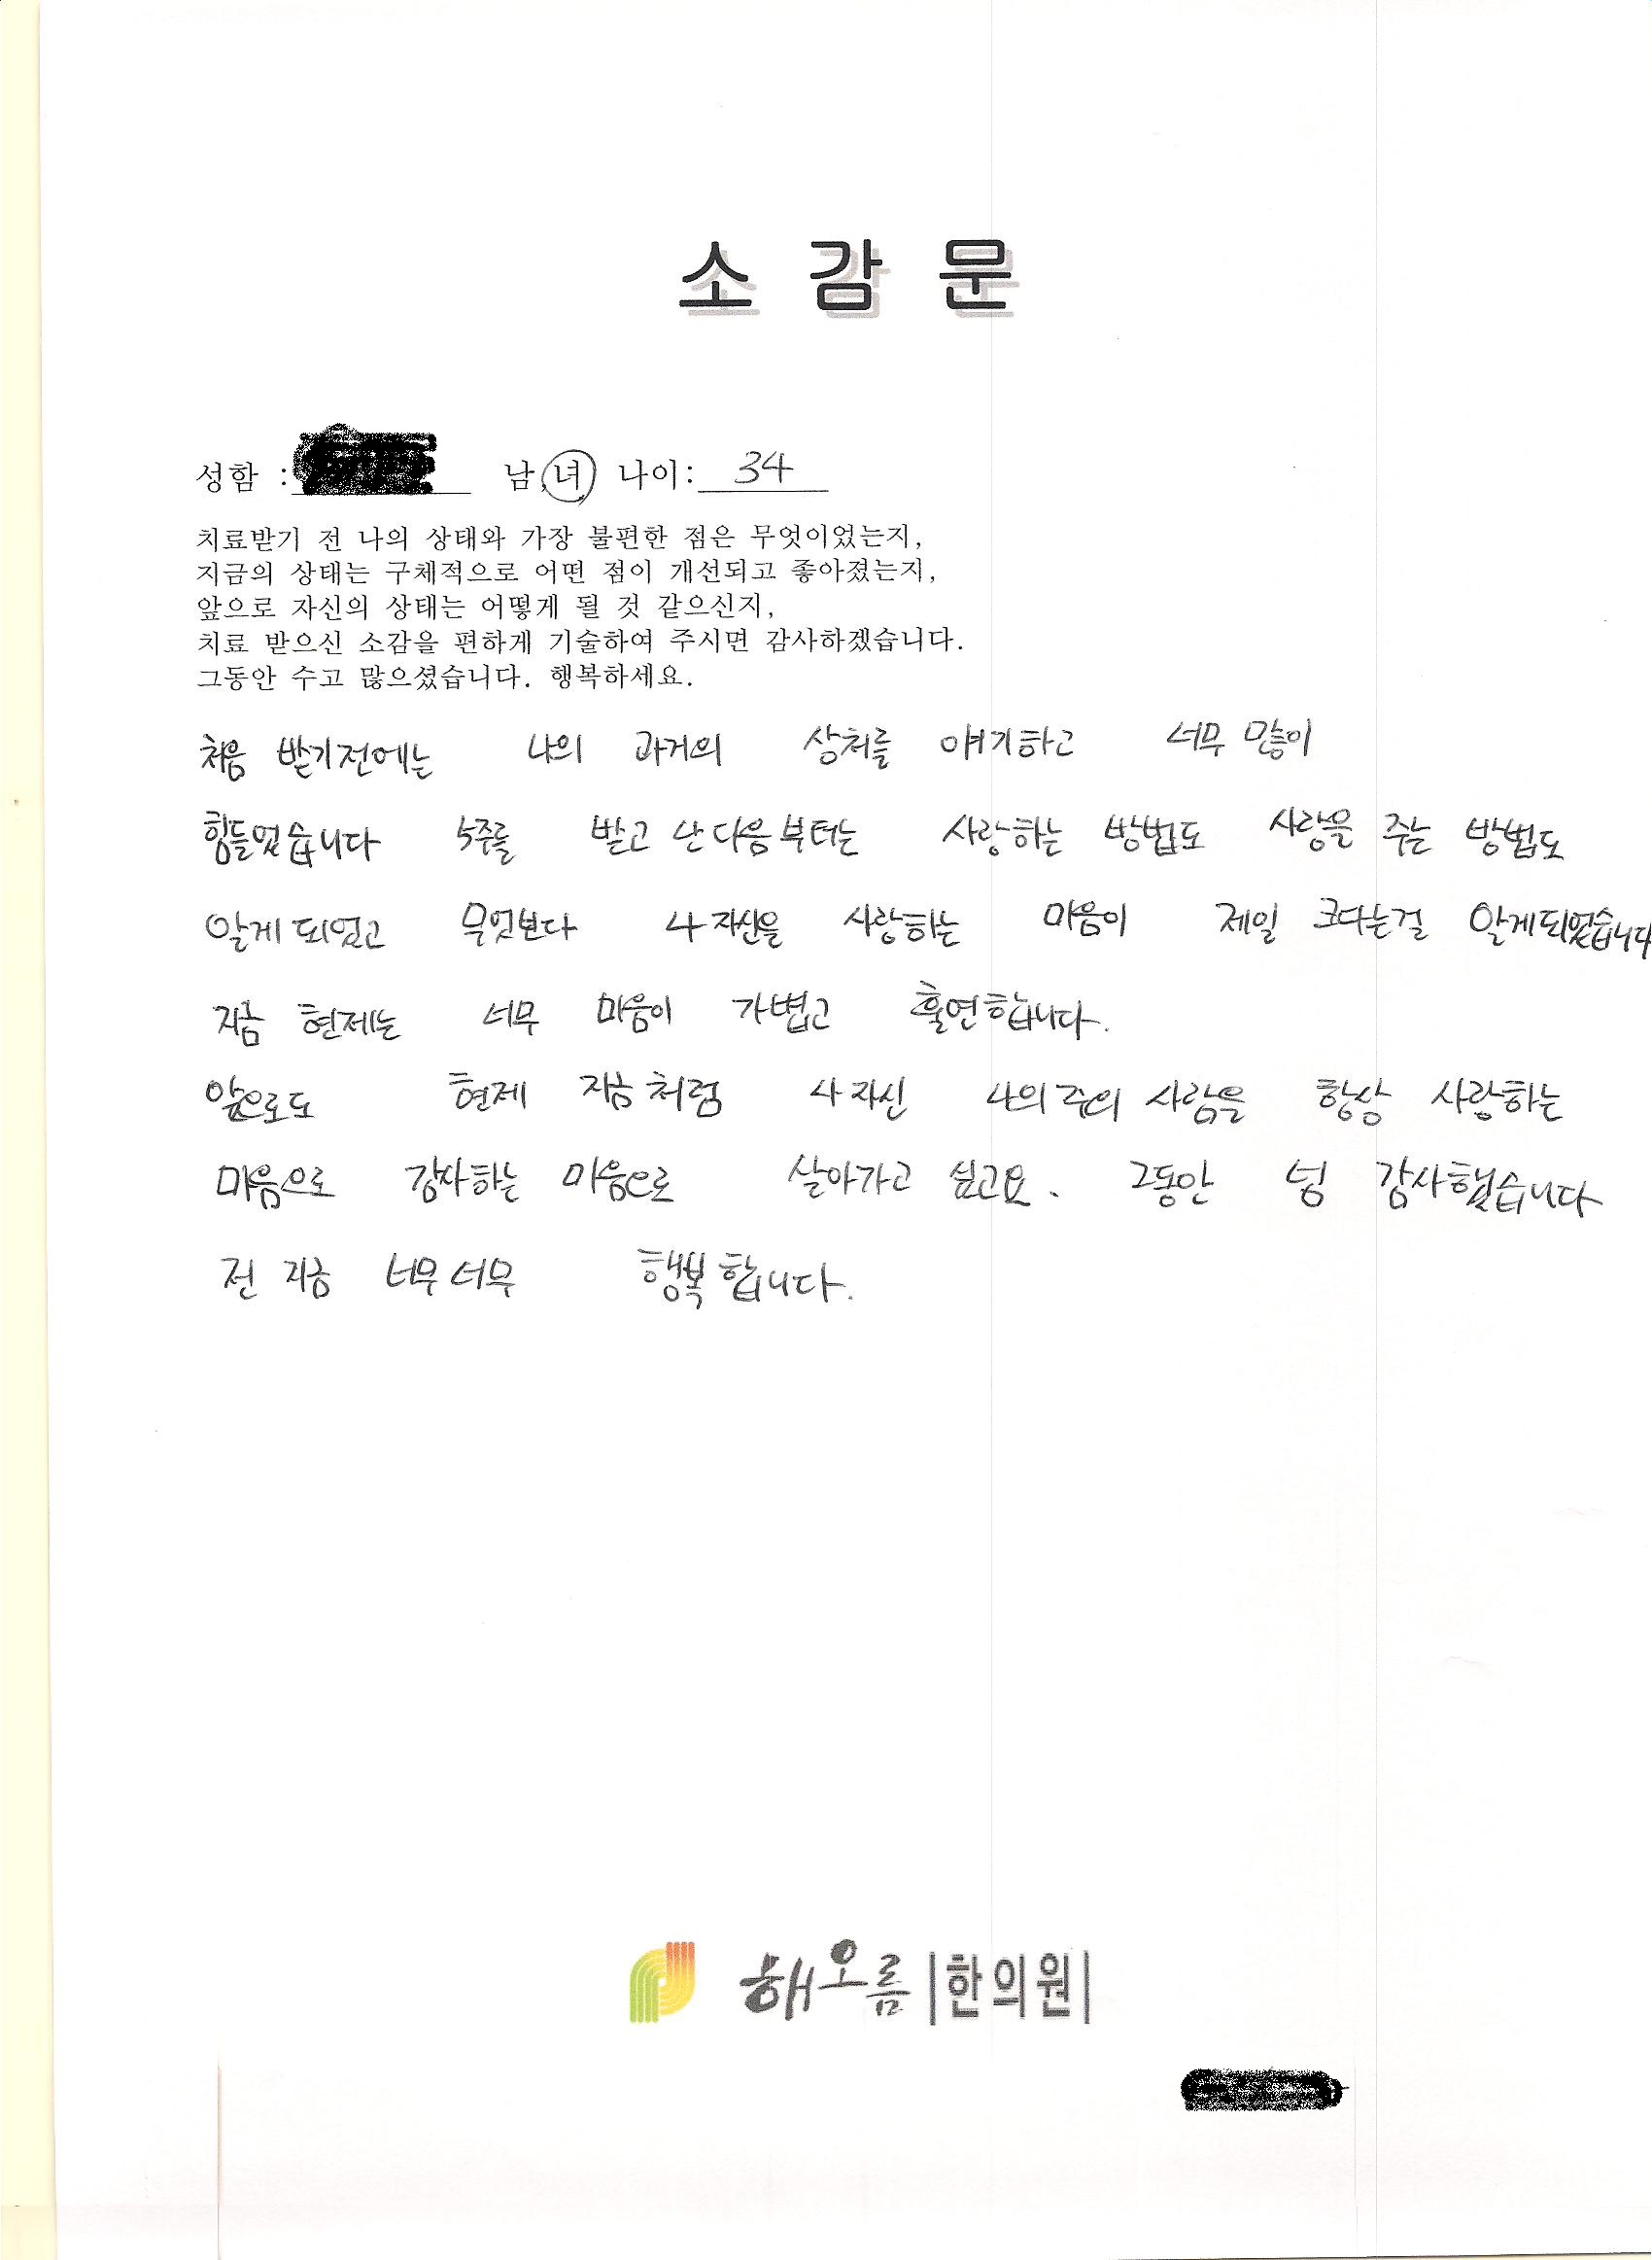 소 감 문
성함 : 남,녀 나이: 34
치료받기 전 나의 상태와 가장 불편한 점은 무엇이었는지,
지금의 상태는 구체적으로 어떤 점이 개선되고 좋아졌는지,
앞으로 자신의 상태는 어떻게 될 것 같으신지,
치료 받으신 소감을 편하게 기술하여 주시면 감사하겠습니다.
그동안 수고 많으셨습니다. 행복하세요.
처음 받기전에는 나의 과거의 상처를 얘기하고 너무 많이
힘들었습니다 5주를 받고 난 다음부터는 사랑하는 방법도 사랑을 주는 방법도
알게 되었고 무엇보다 나 자신을 사랑하는 마음이 제일 크다는걸 알게되었습니다
지금 현제는 너무 마음이 가볍고 훌연합니다.
앞으로도 현제 지금처럼 나 자신 나의 주의 사람을 항상 사랑하는
마음으로 감사하는 마음으로 살아가고 싶고요. 그동안 넘 감사했습니다
전 지금 너무너무 행복합니다.
해오름 |한의원|